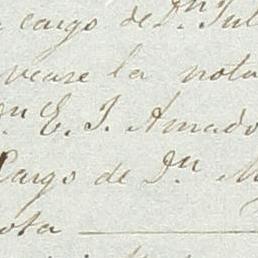 cargo de Dn Jul
vease la nota
n E. J. Amado
Cargo de Dn M
ota